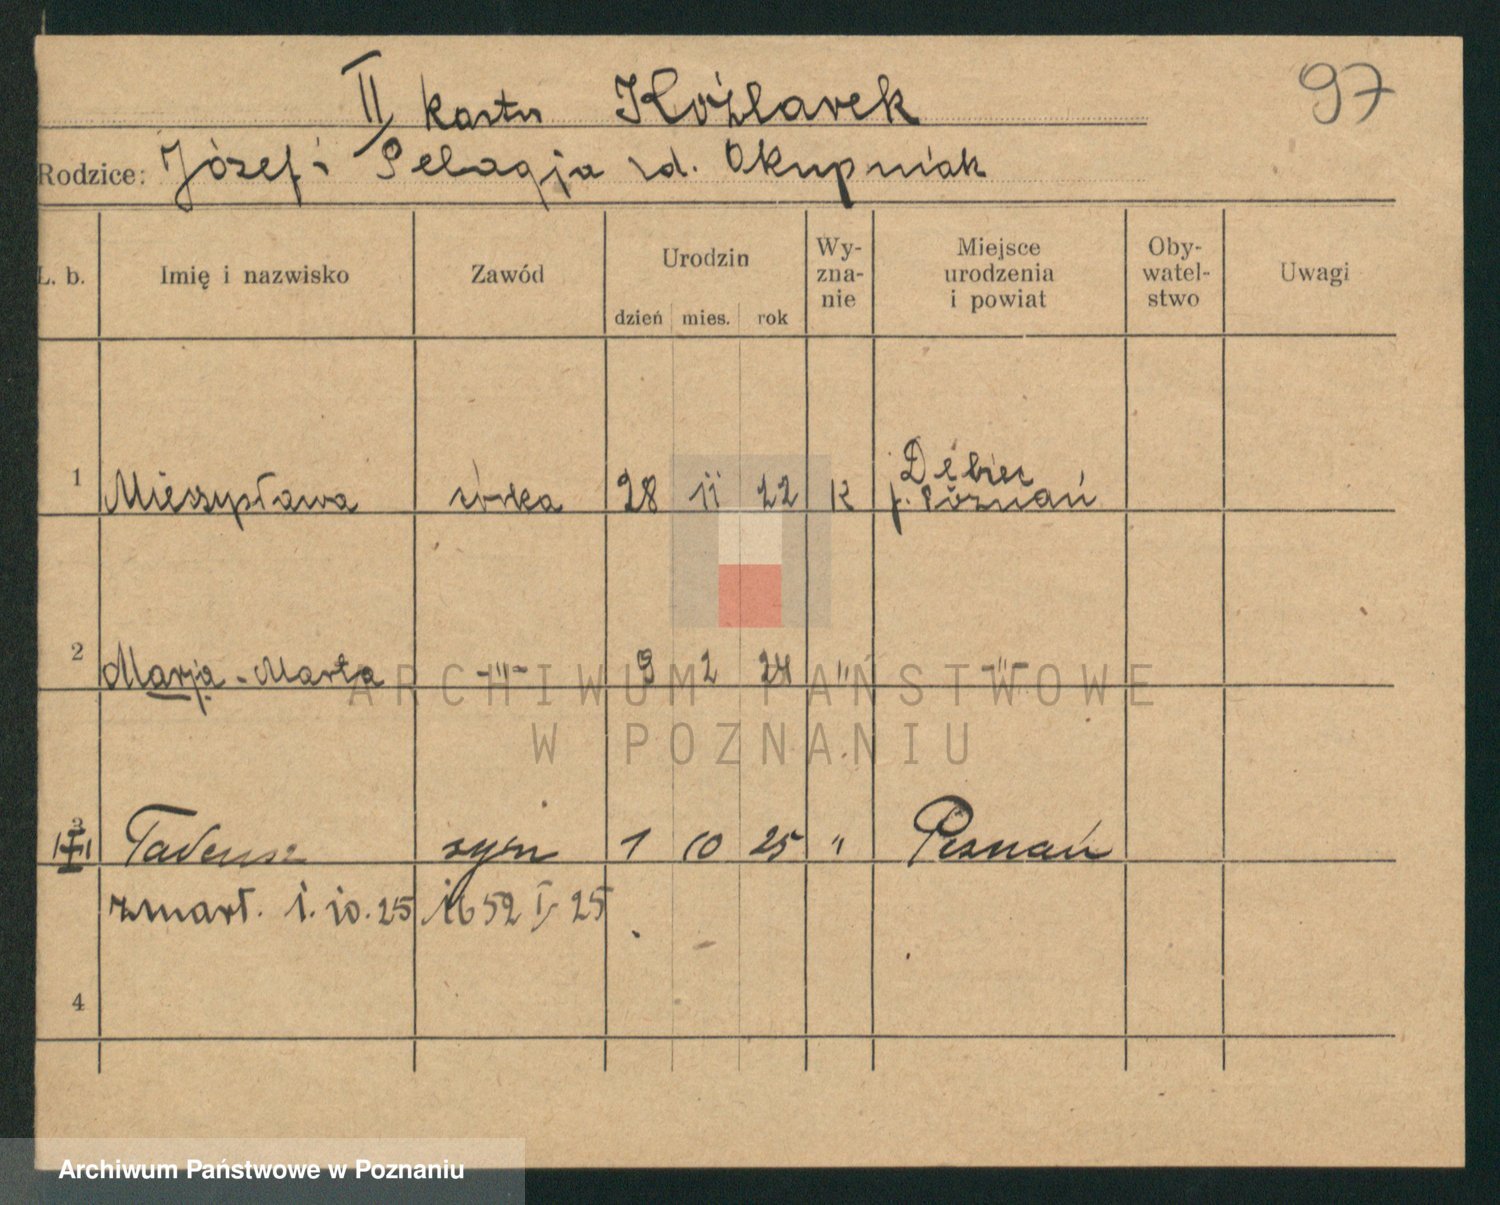 II karta Koźlarek
97
Rodzice: Józef i Pelagja zd. Okupniak
L. b. Imię i nazwisko Zawód Urodzin Wy-zna-nie Miejsce urodzenia i powiat Oby-watel-stwo Uwagi
dzień mies. rok
1 Mieczysława córka 28 11 22 K Dębiec p. Poznań
2 Marja - Marta -"- 3 2 24 " -"-
ARCHIWUM PAŃSTWOWE
W POZNANIU
3 Tadeusz syn 1 10 25 " Poznań
zmarł. 1. 10. 25 1652 I 25
4
Archiwum Państwowe w Poznaniu